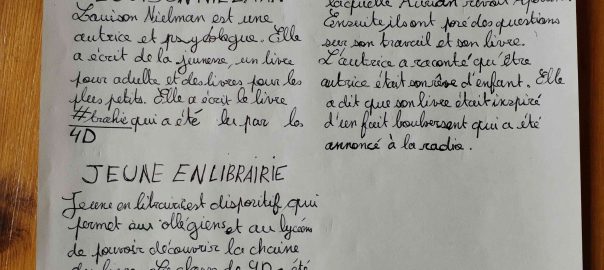 LOUISON NIELMAN
Louison Nielman est une
autrice et psychologue. Elle
a écrit de la jeunesse, un livre
pour adulte et des livres pour les
plus petits. Elle a écrit le livre
#trahie qui a été lu par la
4D
JEUNE EN LIBRAIRIE
Jeune en librairie est dispositif qui
permet aux collégiens et au lycéens
de pouvoir découvrir la chaine
du livre. La classe de 4D a été
laquelle Adrian
Ensuite ils ont posé des questions
sur son travail et son livre.
L'autrice a raconté qu'être
autrice était son rêve d'enfant. Elle
a dit que son livre était inspiré
d'un fait boulversent qui a été
annoncé à la radio.